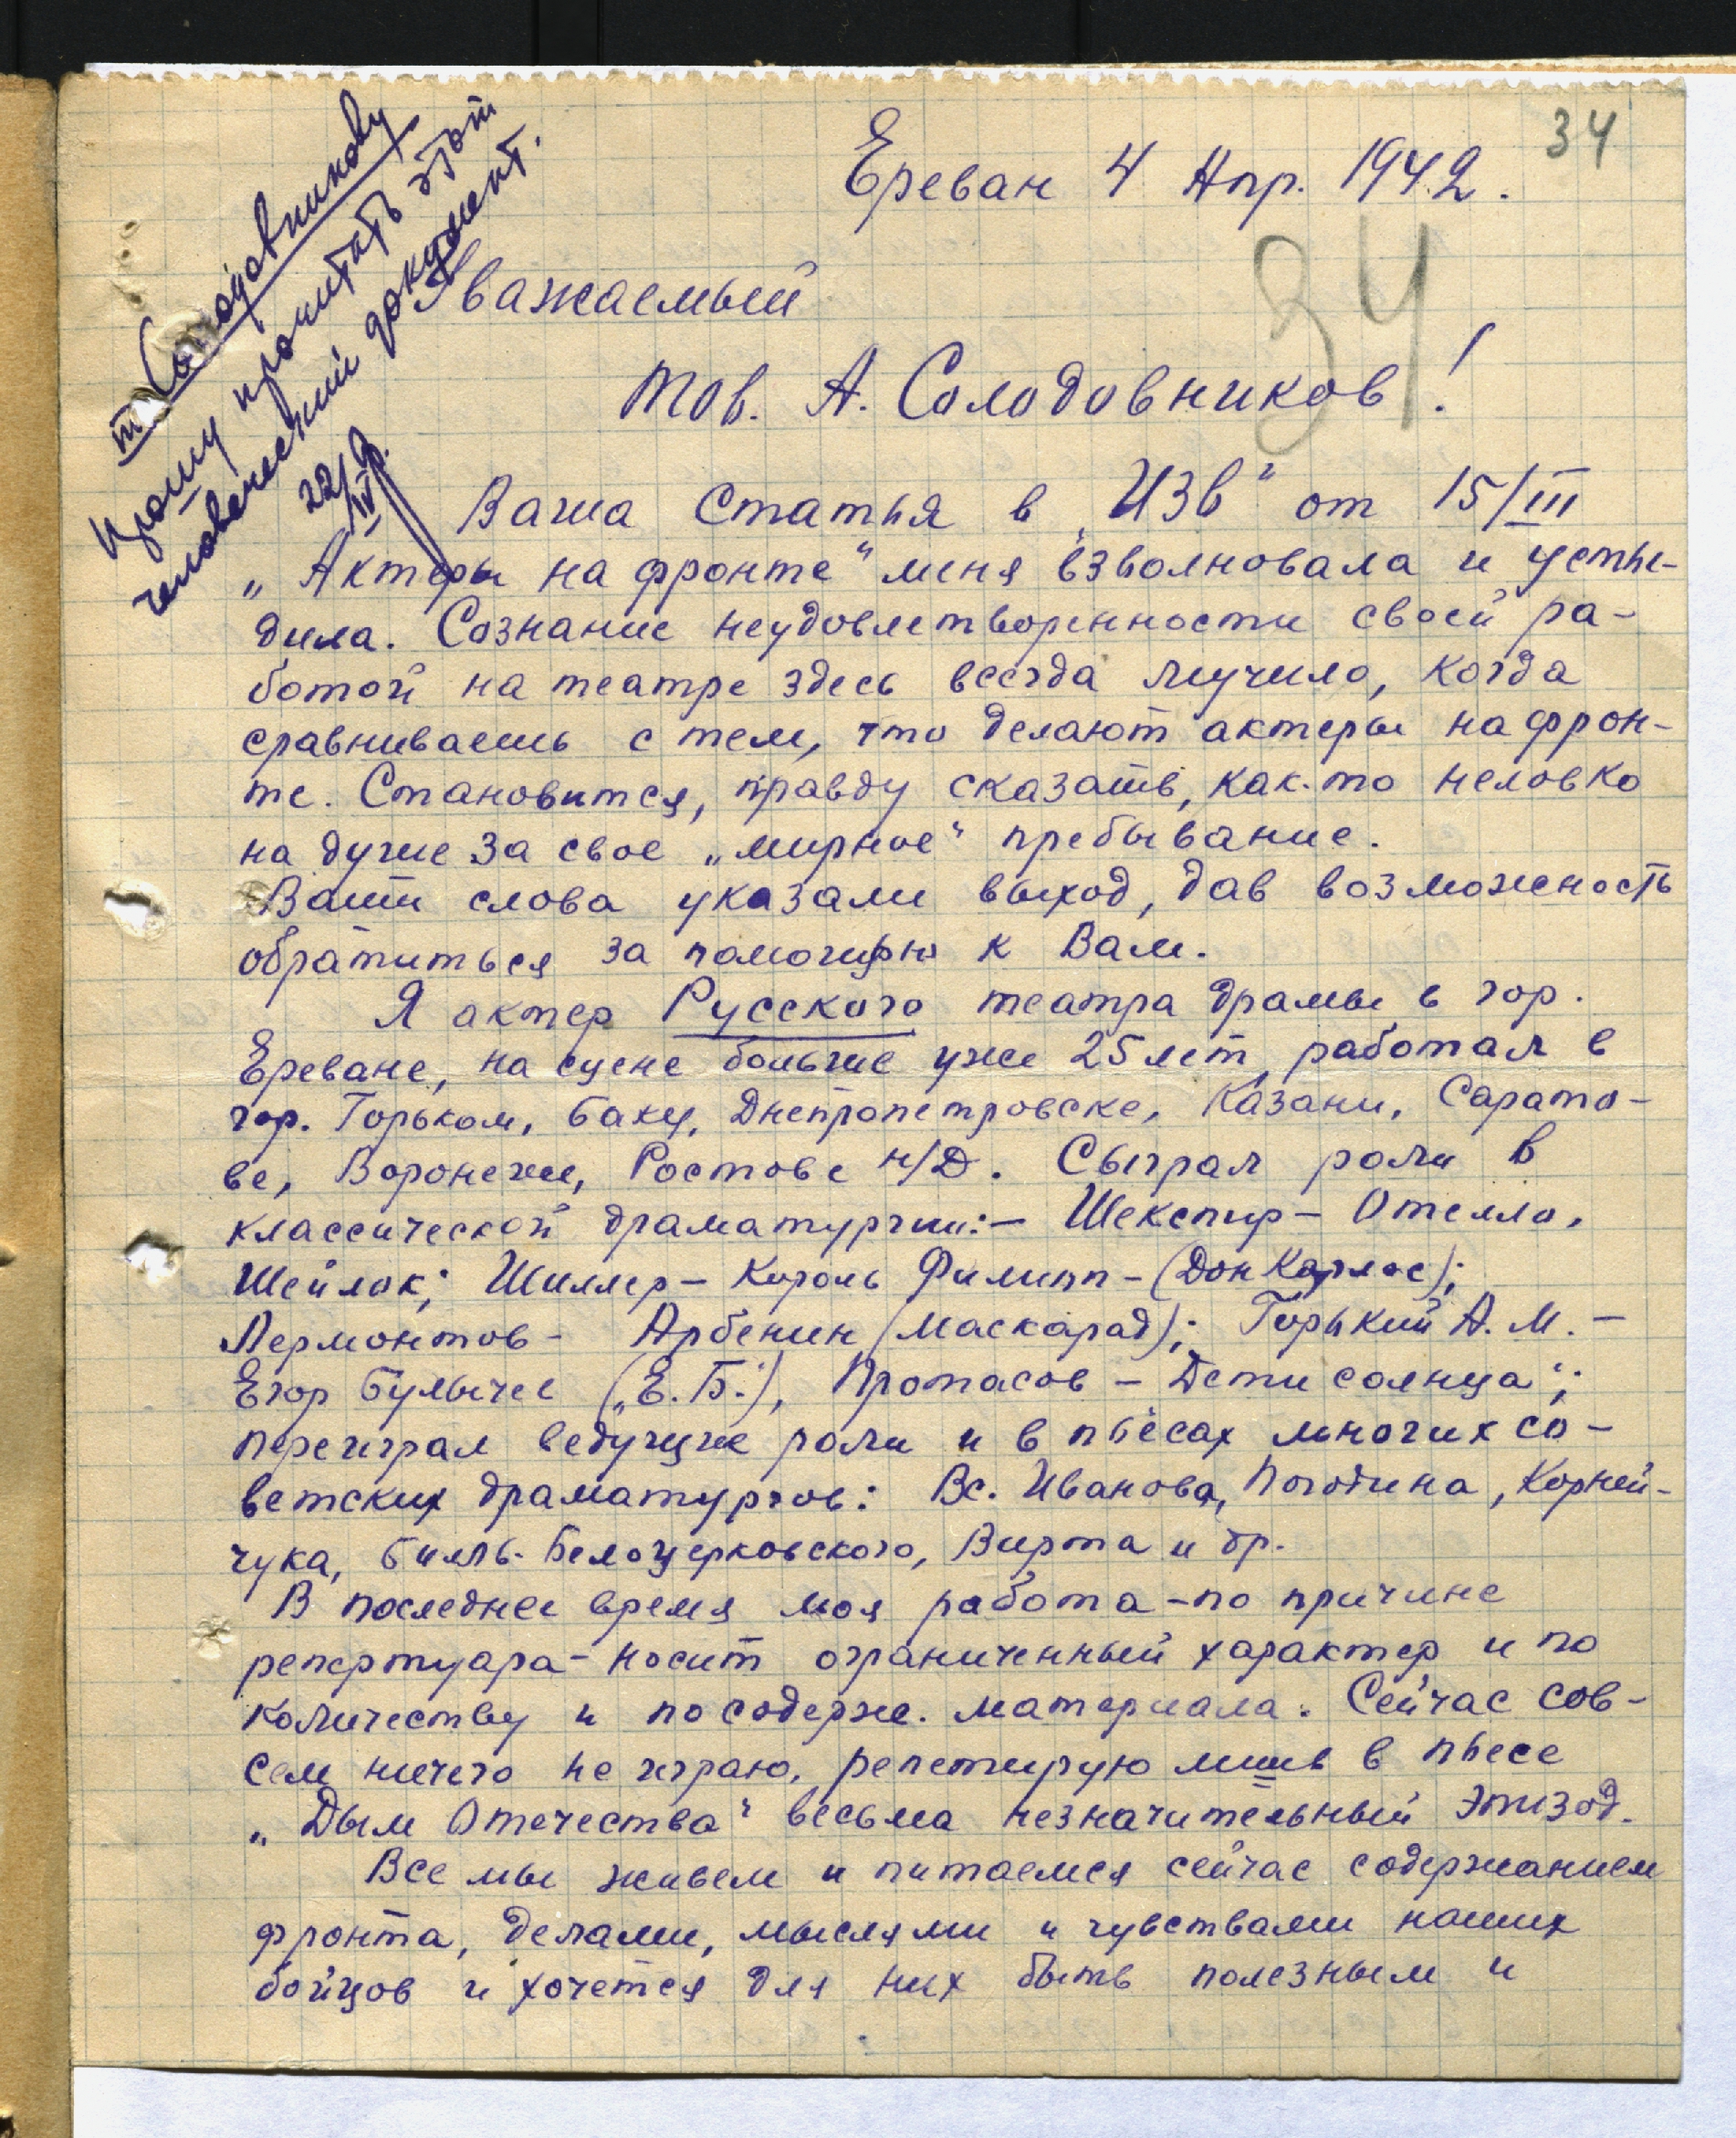 34
Ереван 4 Апр. 1942.
т. Солодовникову
Прошу прочитать этот
человеческий документ.
22/IV
34
Уважаемый
тов. А. Солодовников!
Ваша статья в „Изв“ от 15/III
„Актеры на фронте“ меня взволновала и усты-
дила. Сознание неудовлетворенности своей ра-
ботой на театре здесь всегда мучило, когда
сравниваешь с тем, что делают актеры на фрон-
те. Становится, правду сказать, как-то неловко
на душе за свое „мирное“ пребывание.
Ваши слова указали выход, дав возможность
обратиться за помощью к Вам.
Я актер Русского театра драмы в гор.
Ереване, на сцене больше уже 25 лет, работал в
гор. Горьком, Баку, Днепропетровске, Казани, Сарато-
ве, Воронеже, Ростове н/Д. Сыграл роли в
классической драматургии:– Шекспир – Отелло,
Шейлок; Шиллер – Король Филипп – (Дон Карлос);
Лермонтов – Арбенин (Маскарад); Горький А. М. –
Егор Булычев („Е.Б.“), Протасов – Дети солнца“;
переиграл ведущие роли и в пьесах многих со-
ветских драматургов: Вс. Иванова, Погодина, Корней-
чука, Билль-Белоцерковского, Вирта и др.
В последнее время моя работа – по причине
репертуара – носит ограниченный характер и по
количеству и по содерж. материала. Сейчас сов-
сем ничего не играю, репетирую лишь в пьесе
„Дым Отечества“ весьма незначительный эпизод.
Все мы живем и питаемся сейчас содержанием
фронта, делами, мыслями и чувствами наших
бойцов и хочется для них быть полезным и